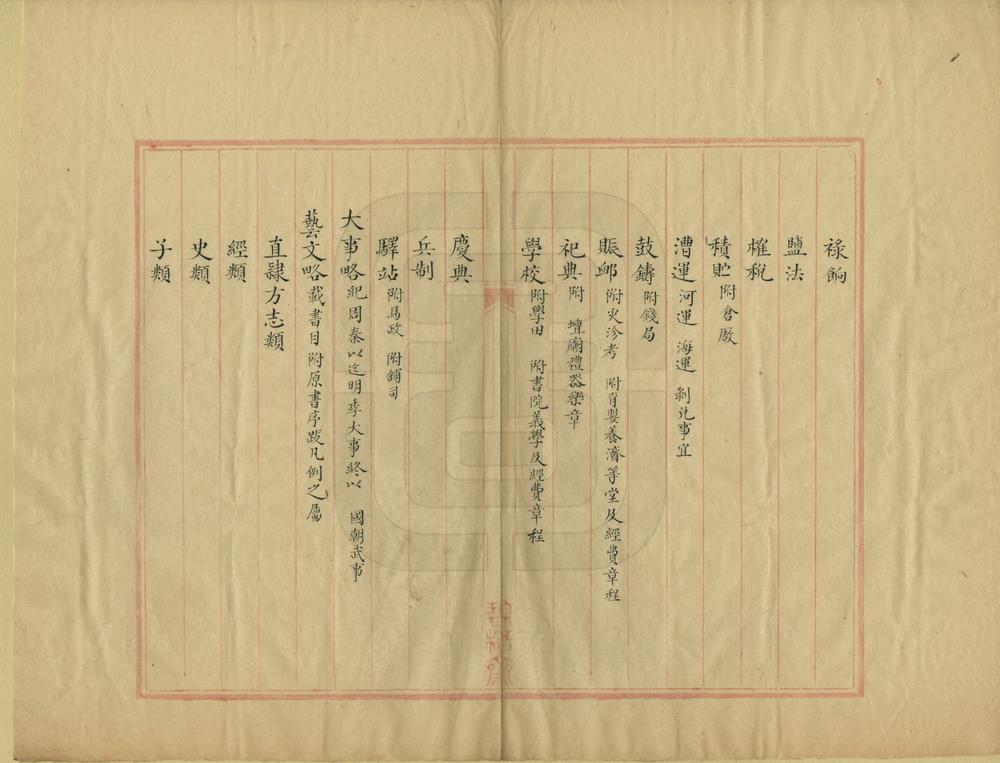 祿餉
鹽法
榷稅
積貯附倉廒
漕運河運 海運 剝兌事宜
鼓鑄附錢局
賑邺附灾沴考 附育嬰養濟等堂及經費章程
祀典附 壇廟禮器樂章
學校附學田 附書院義學及經費章程
慶典
兵制
驛站附馬政 附鋪司
大事略紀周秦以迄明季大事終以 國朝武事
藝文略載書目附原書序跋凡例之屬
直隸方志類
經類
史類
子類